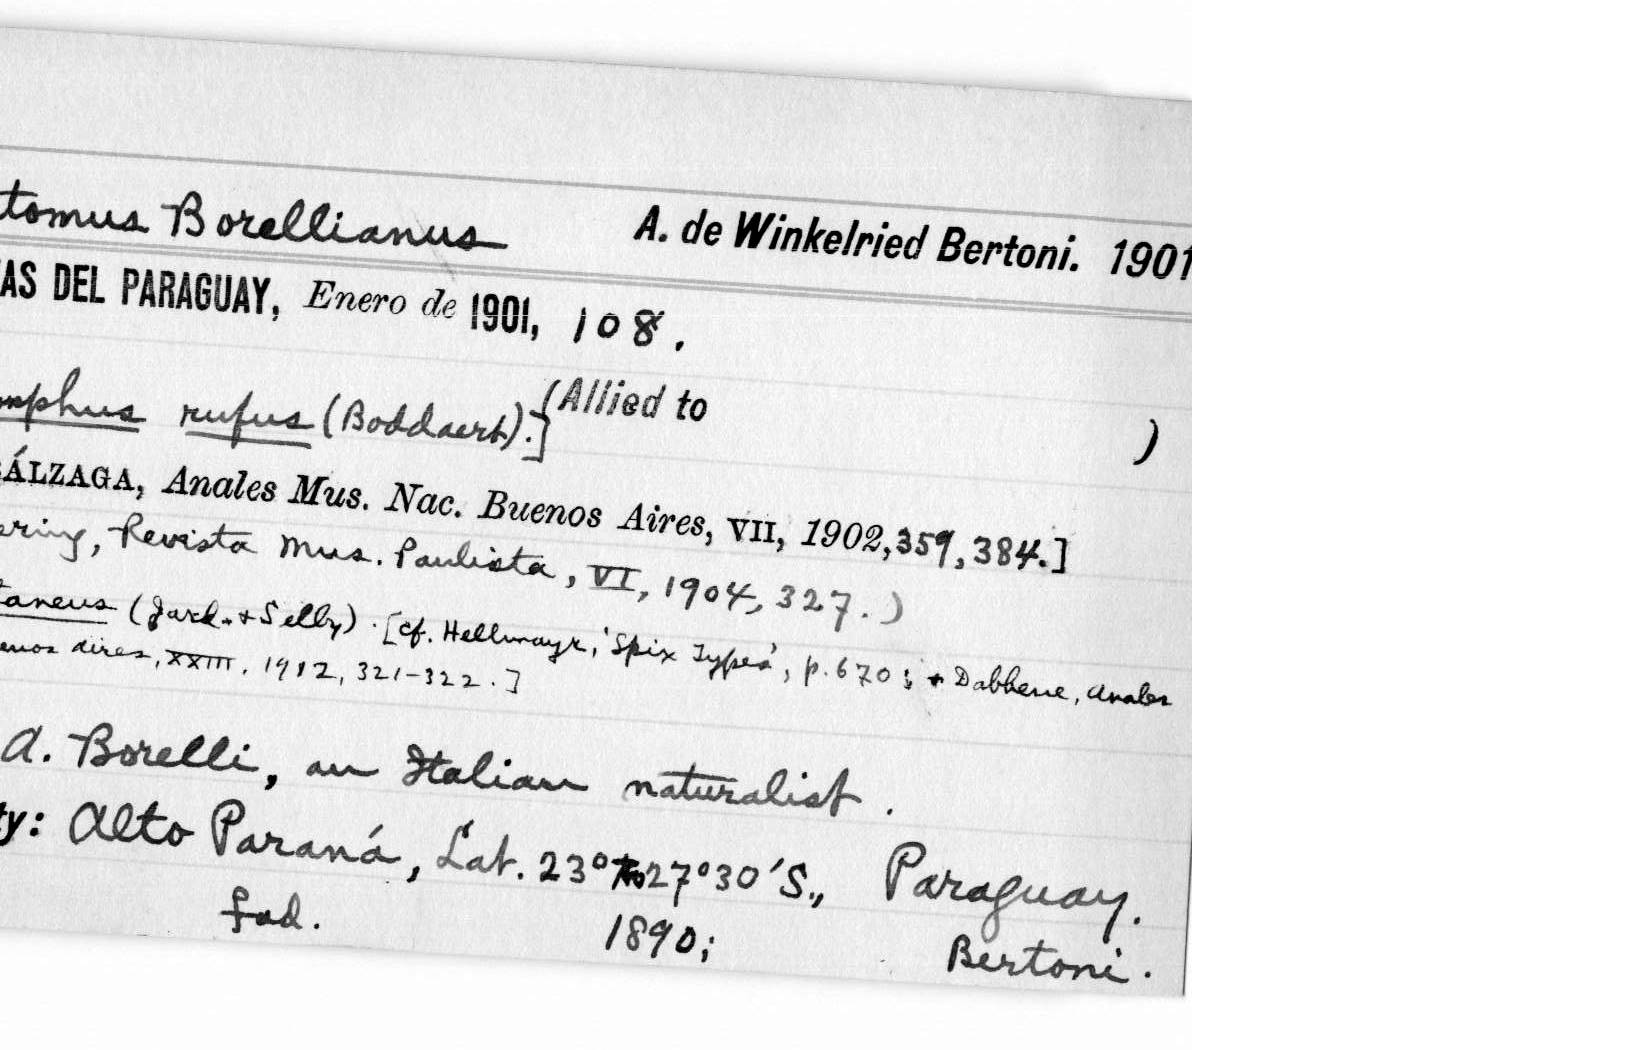 tomus Borellianus A. de Winkelried Bertoni. 1901
AS DEL PARAGUAY, Enero de 1901, 108.
mphus rufus (Boddaert).] (Allied to )
ÁLZAGA, Anales Mus. Nac. Buenos Aires, VII, 1902, 359, 384.]
ering, Revista Mus. Paulista, VI, 1904, 327.)
taneus (Jard. + Selby). [cf. Hellmayr, 'Spix Types', p. 670; + Dabbene, Anales
enos Aires, XXIII, 1912, 321-322.]
A. Borelli, an Italian naturalist.
ty: Alto Paraná, Lat. 23° to 27°30'S., Paraguay.
♂ad. 1890; Bertoni.